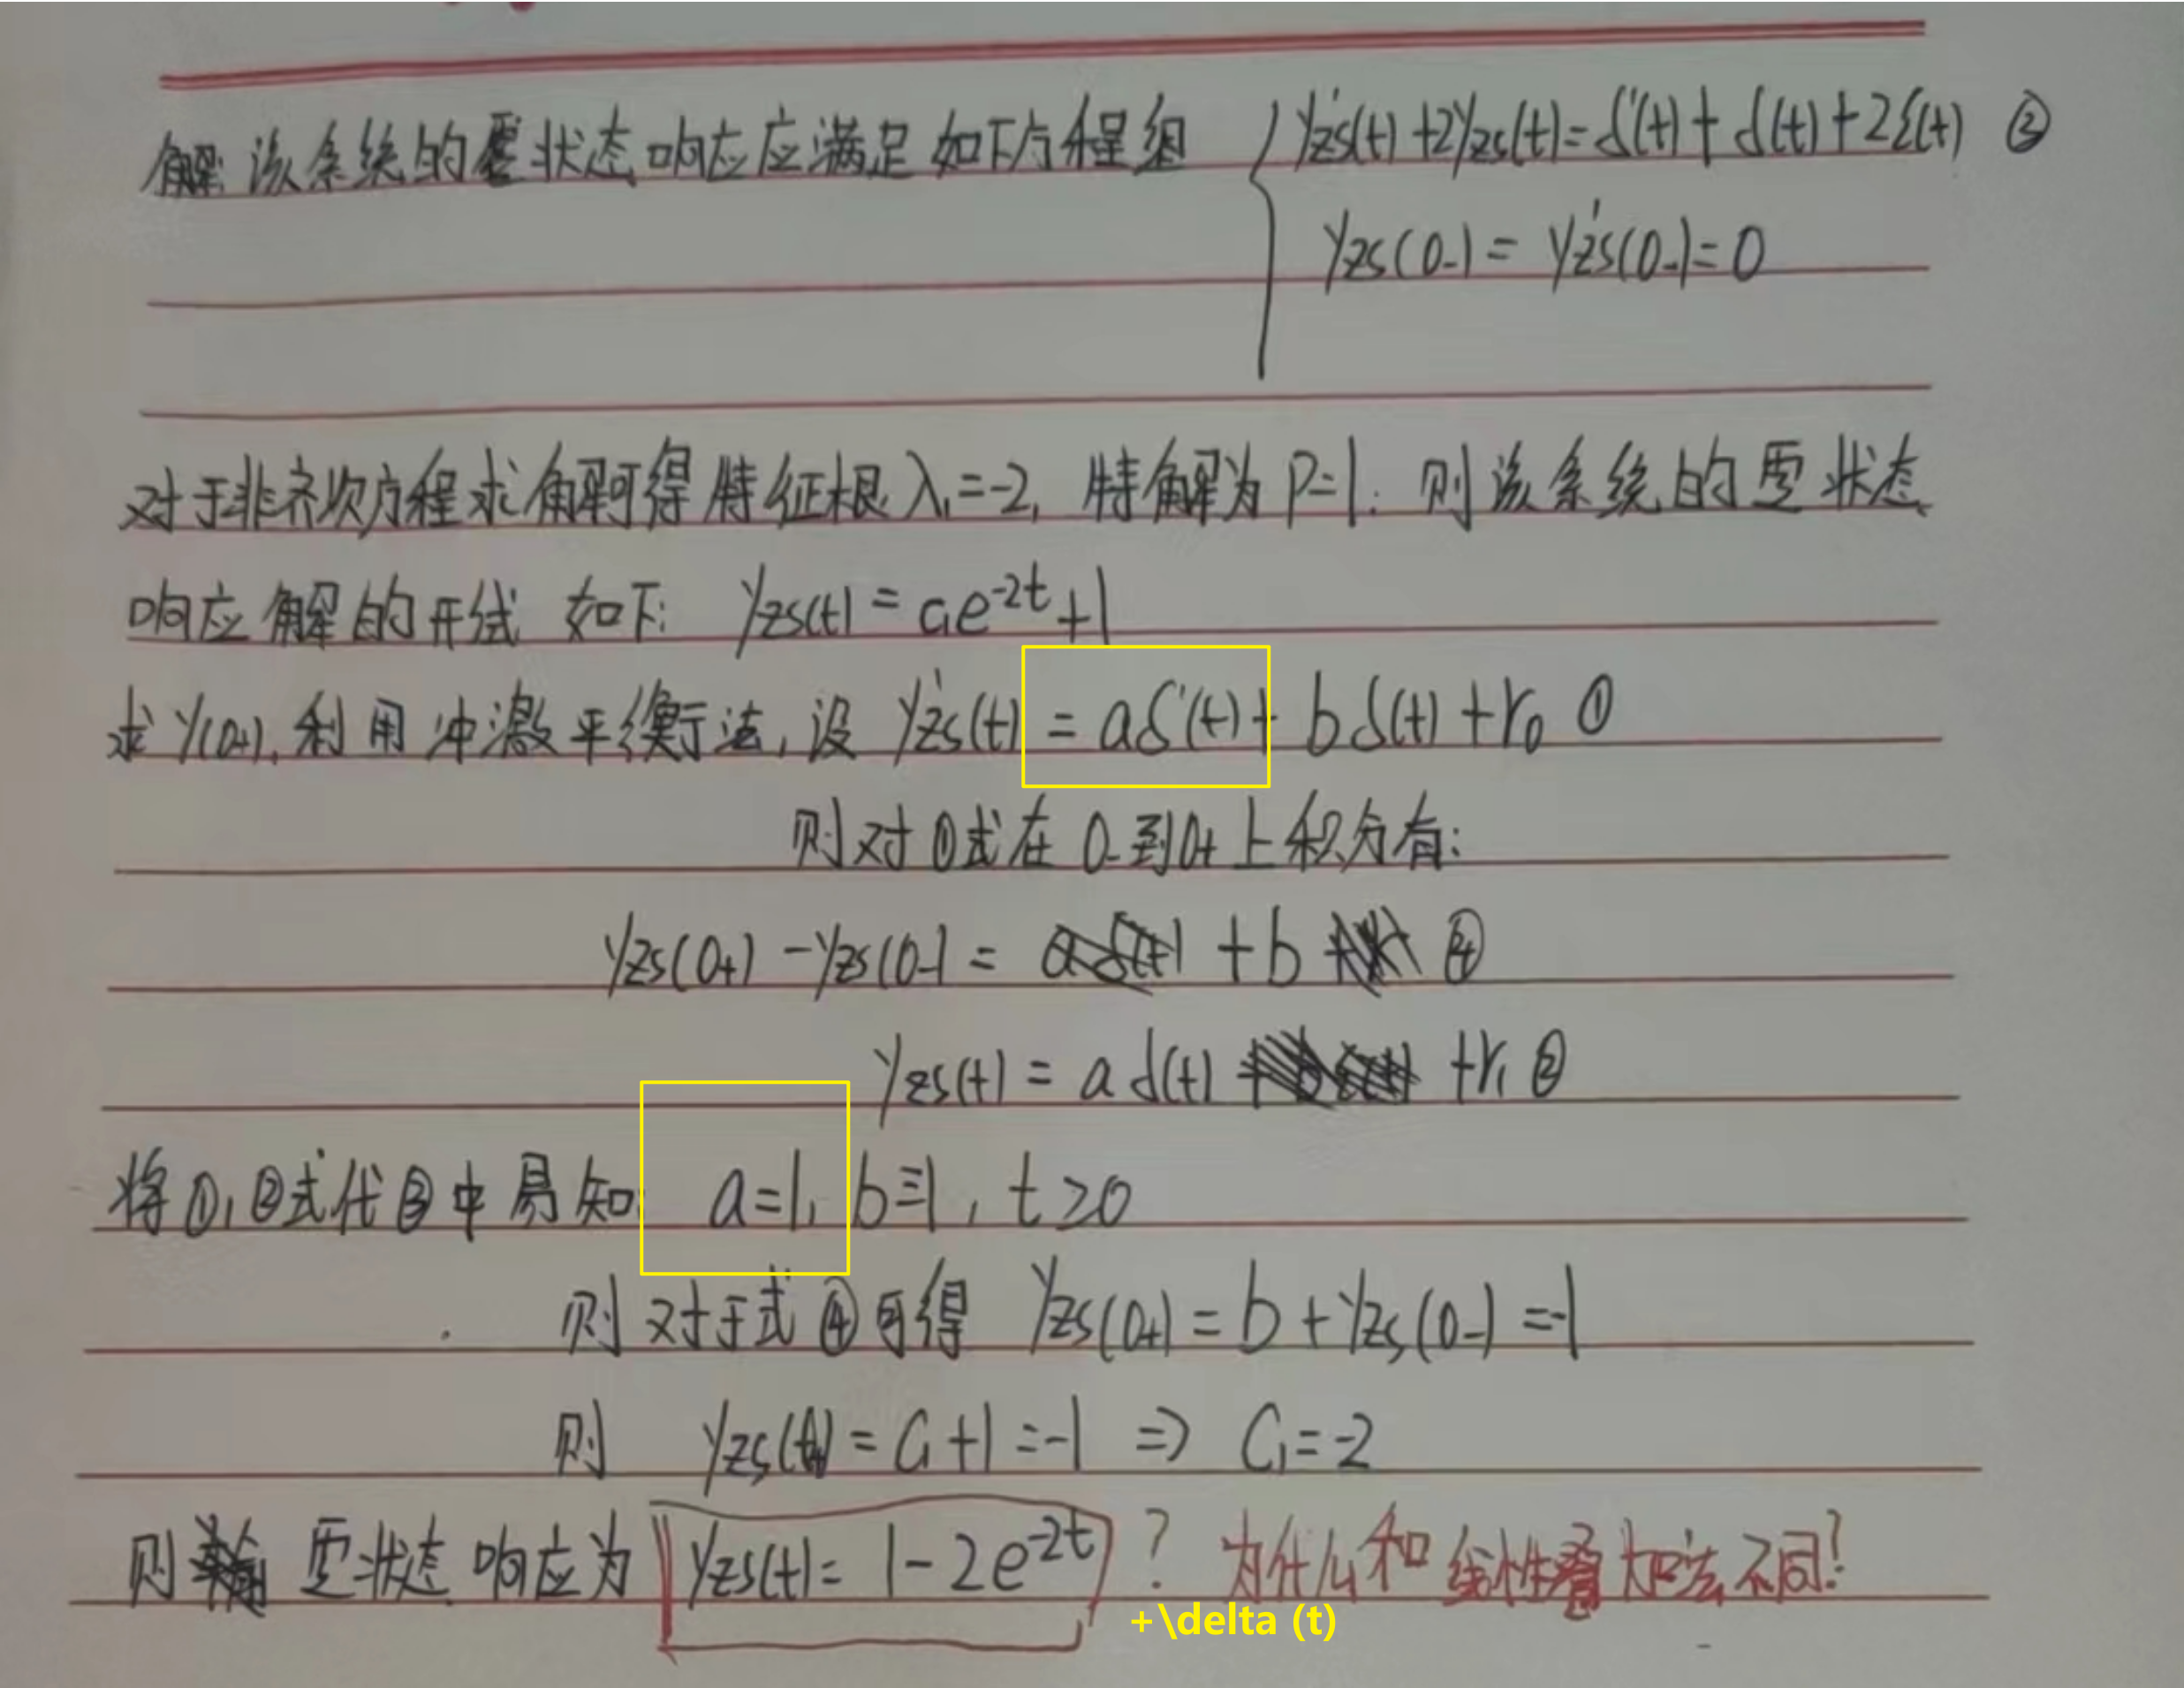 解: 该系统的零状态响应应满足如下方程组 { y'zs(t) + 2yzs(t) = δ'(t) + δ(t) + 2ε(t) ③
yzs(0-) = y'zs(0-) = 0
对于非齐次方程求解可得特征根 λ₁=-2, 特解为 P=1. 则该系统的零状态
响应解的形式如下: yzs(t) = C₁e^-2t + 1
求 y(0+), 利用冲激平衡法, 设 y'zs(t) = aδ'(t) + bδ(t) + r₀ ①
则对①式在 0-到0+上积分有:
yzs(0+) - yzs(0-) = + b ④
yzs(t) = aδ(t) + r₁ ②
将①,②式代③中易知: a=1, b=-1, t≥0
则对于式④可得 yzs(0+) = b + yzs(0-) = -1
则 yzs(0+) = C₁+1 = -1 ⇒ C₁=-2
则 零状态响应为 yzs(t) = 1-2e^-2t ? 为什么和线性叠加法不同?
+\delta (t)